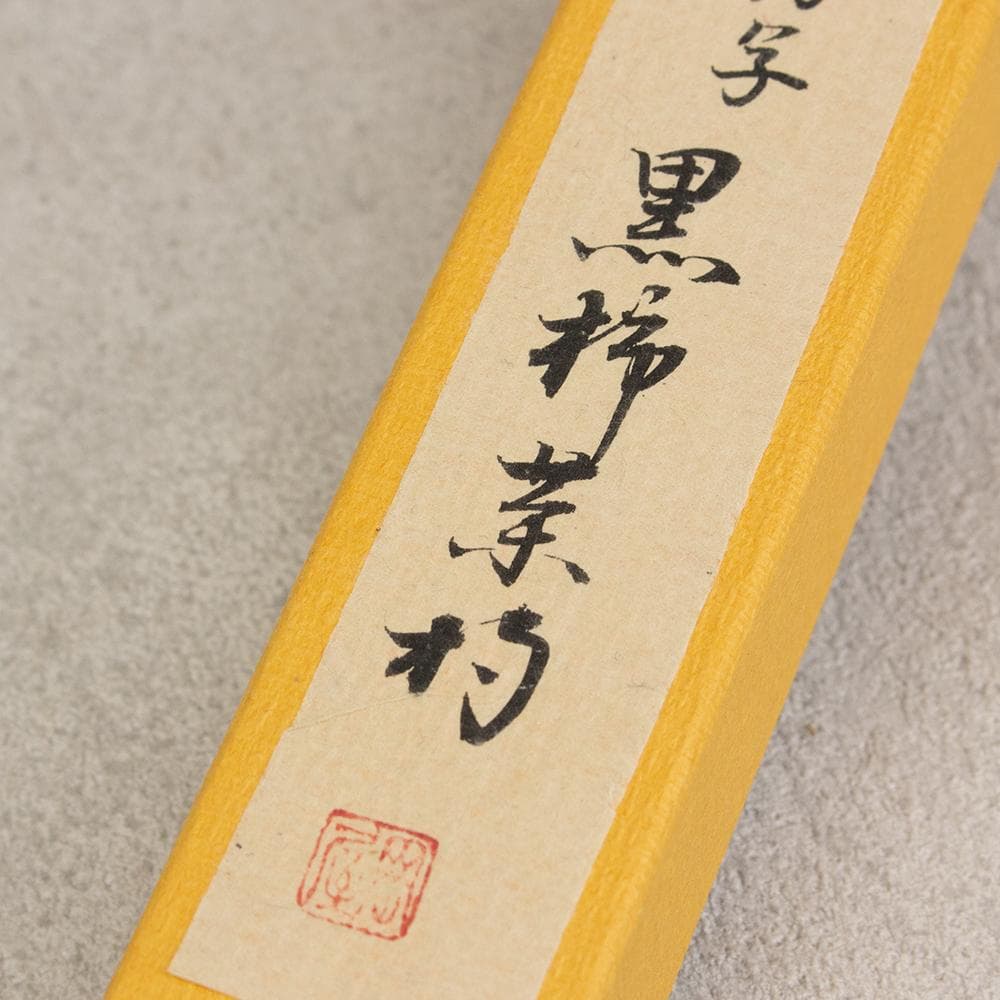 字 黒柿茶杓